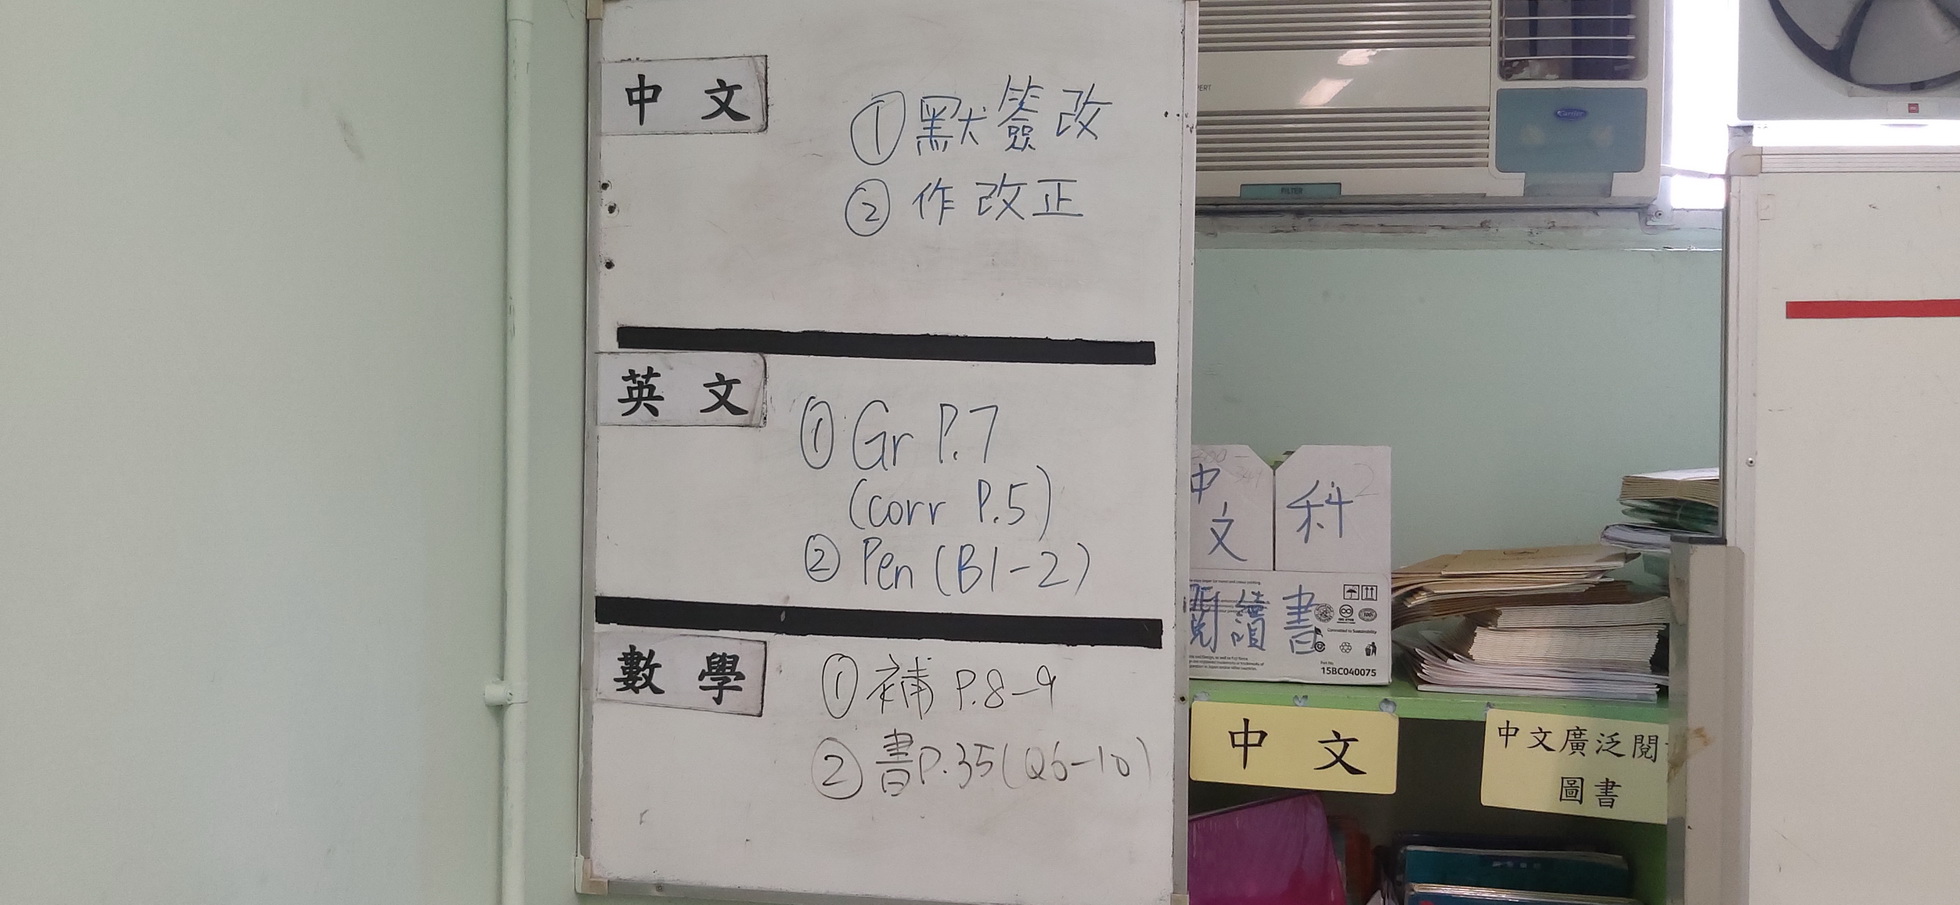 中文
①默簽改
②作改正
英文
①Gr P.7
(corr P.5)
②Pen (B1-2)
數學
①補 P.8-9
②書P.35(Q6-10)
FILTER
中文
科
閱讀書
15BC040075
中文
中文廣泛閱
圖書